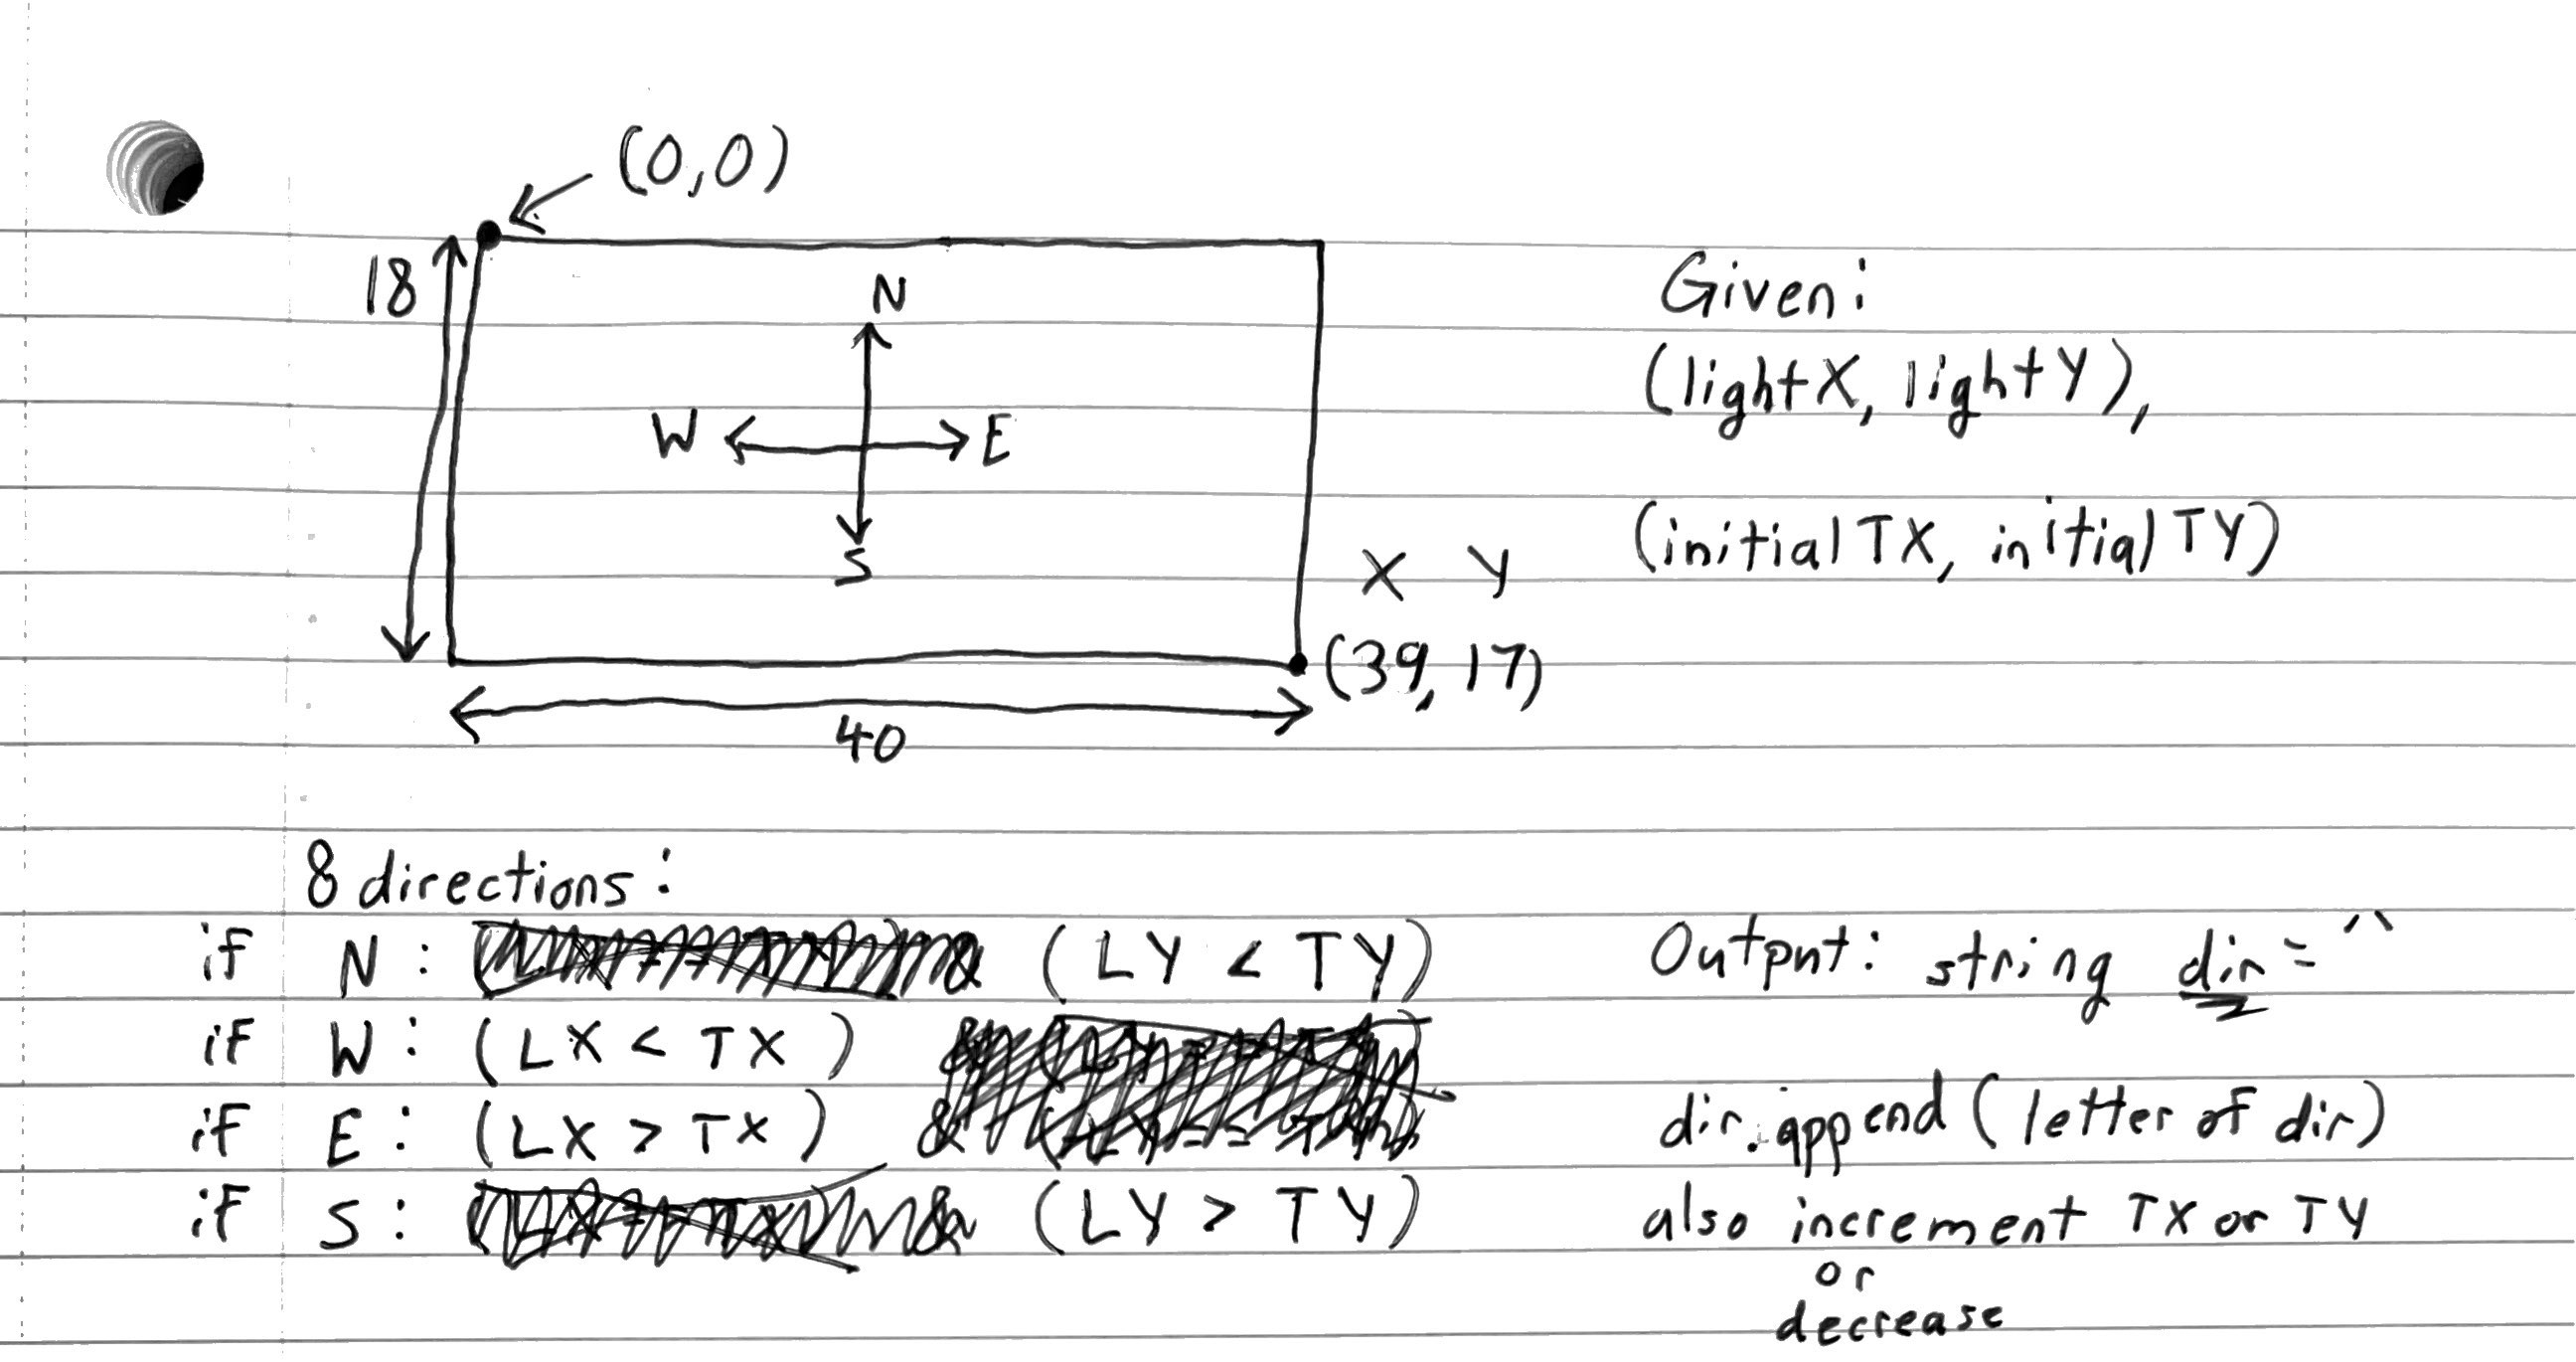 (0,0)
18
N
W E
S
X Y
(39,17)
40
Given:
(lightX, lightY),
(initialTX, initialTY)
8 directions:
if N: & (LY < TY)
if W: (LX < TX)
if E: (LX > TX) &
if S: & (LY > TY)
Output: string dir = "
dir.append(letter of dir)
also increment TX or TY
or
decrease